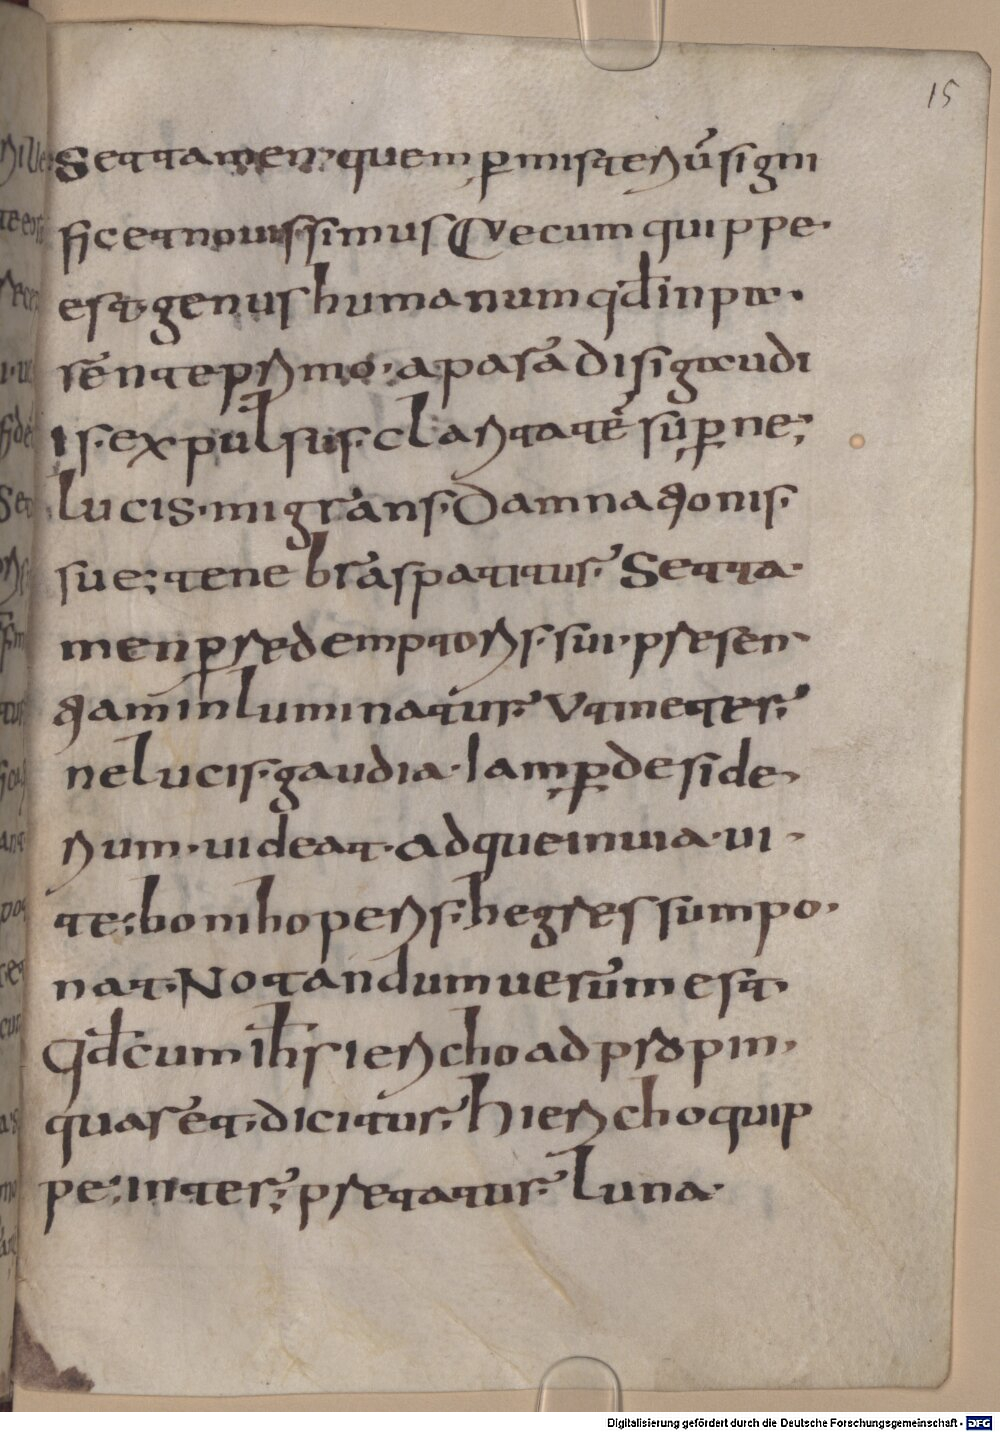 15
Settamen quem p̱ misteriū signi
ficet nouissimus Cęcum quippe·
est· genus humanum qđ in pa·
rente primo· a paradisi gaudi
is· expulsus· claritatē sup̱ne;
lucis· migrans· Damnationis·
sue; tenebras patitur· Setta·
men p̱ redemptoris· sui· presen·
tiam inluminatur· Vt in eter·
ne lucis· gaudia· lam p̱ deside
rium· uideat· adque in uia· ui
te; boni hoperis· hegressum po·
nat· Notandum uerum est·
Qđ cum ih̅s ierichо adpropin·
quaret· dicitur· hiericho quip
pe; inter·pretatur· luna·
Digitalisierung gefördert durch die Deutsche Forschungsgemeinschaft - DFG